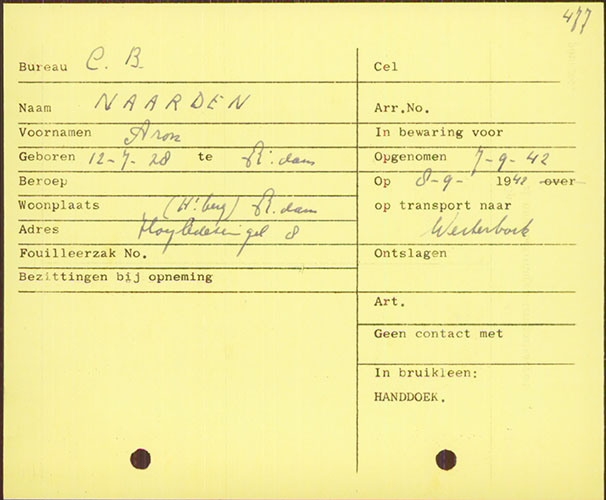 477
Bureau C. B.
Cel
Naam NAARDEN
Arr.No.
Voornamen Aron
In bewaring voor
Geboren 12-7-28 te R:dam
Opgenomen 7-9-42
Beroep
Op 8-9- 1942 over
Woonplaats (H:berg) R.dam
op transport naar
Adres 8
Westerbork
Fouilleerzak No.
Ontslagen
Bezittingen bij opneming
Art.
Geen contact met
In bruikleen:
HANDDOEK.